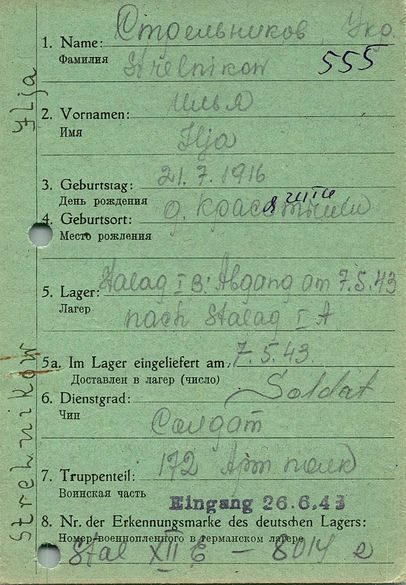 1. Name: Стрельников, Укр.
Фамилия Strelnikow 555
2. Vornamen: Илья
Имя Ilja
3. Geburtstag: 21.7.1916
День рождения
4. Geburtsort: д.
Место рождения
5. Lager: Stalag I B. Abgang am 7.5.43
Лагерь nach Stalag I A
5a. Im Lager eingeliefert am: 7.5.43.
Доставлен в лагер (число)
6. Dienstgrad: Soldat
Чин Солдат
7. Truppenteil: 172 Арт полк
Воинская часть
Eingang 26.6.43
8. Nr. der Erkennungsmarke des deutschen Lagers:
Номер военнопленного в германском лагере
Stal XII E – 8014
Strelnikow Ilja